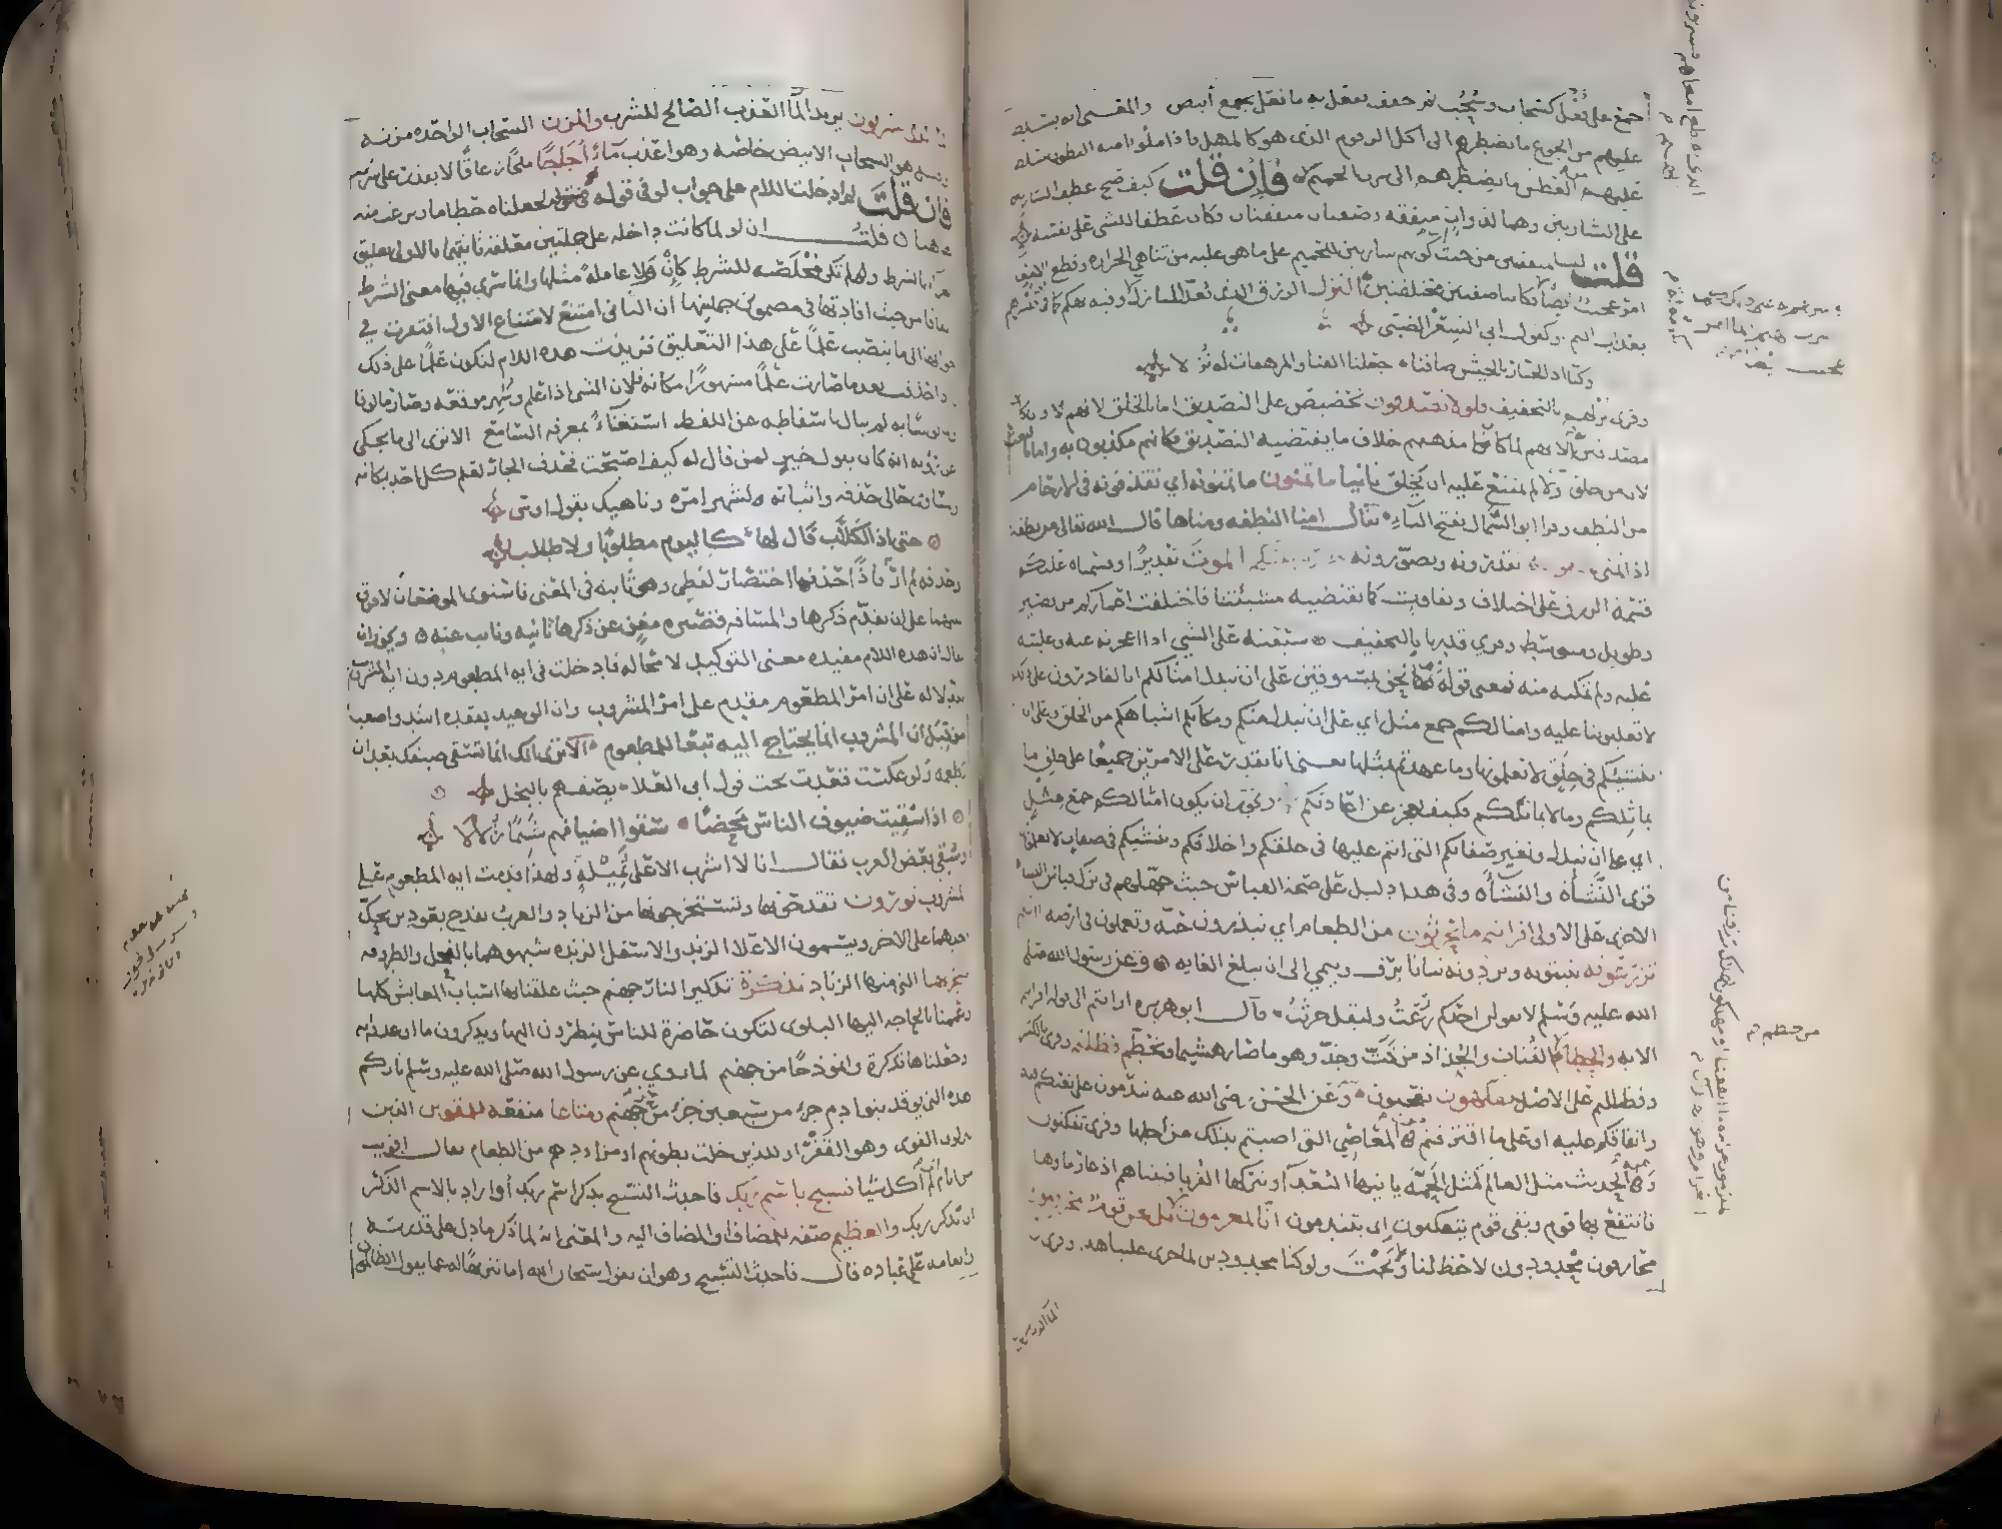 جمع على فعل كسحاب وسحب ثم خفف فعل به ما فعل بجمع أبيض والمعنى انه يسلط
عليهم من الجوع ما يضطرهم الى اكل الزقوم الذي هو كالمهل فاذا ملؤا منه البطون سلط
عليهم من العطش ما يضطرهم الى شرب الحميم فان قلت كيف صح عطف الشاربين
على الشاربين وهما لذوات متفقه وصفتان متفقتان فكان عطفا للشي على نفسه
قلت ليستا بمتفقتين من حيث كونهم شاربين للحميم على ما هو عليه من تناهي الحراره وقطع الامعا
امر عجيب ايضا فكانتا صفتين مختلفتين النزل الرزق الذي يعد للنازل وفيه تهكم كما في فبشرهم
بعذاب اليم وكقول ابي الشعر الضبي
وكنا اذا الجبار بالجيش ضافنا جعلنا القنا والمرهفات له نزلا
وقرى نزلهم بالتخفيف فلولا تصدقون تحضيض على التصديق اما بالخلق لانهم وان كانوا
مصدقين به الا انهم لما كان مذهبهم خلاف ما يقتضيه التصديق فكانهم مكذبون به واما بالبعث
لان من خلق اولا لم يمتنع عليه ان يخلق ثانيا ما تمنون ما تمنونه اي تقذفونه في الارحام
من النطف وقرا ابو السمال بفتح التاء يقال امنى النطفه ومناها قال الله تعالى من نطفة
اذا تمنى تقدرونه وتصورونه بينكم الموت تقديرا وقسمناه عليكم
قسمة الرزق على اختلاف وتفاوت كما تقتضيه مشيئتنا فاختلفت اعماركم من قصير
وطويل ومتوسط وقرى قدرنا بالتخفيف سبقته على الشي اذا اعجزته عنه وغلبته
عليه ولم تمكنه منه فمعنى قوله وما نحن بمسبوقين على ان نبدل امثالكم انا قادرون على ذلك
لا تغلبوننا عليه وامثالكم جمع مثل اي على ان نبدل منكم ومكانكم اشباهكم من الخلق وعلى ان
ننشئكم في خلق لا تعلمونها وما عهدتم بمثلها يعني انا نقدر على الامرين جميعا على خلق ما
يماثلكم وما لا يماثلكم فكيف نعجز عن اعادتكم ويجوز ان يكون امثالكم جمع مثل
اي على ان نبدل ونغير صفاتكم التي انتم عليها في خلقكم واخلاقكم وننشئكم في صفات لا تعلمونها
قرى النشأة والنشاءة وفي هذا دليل على صحة القياس حيث جهلهم في ترك قياس النشأة
الاخرى على الاولى افرايتم ما تحرثون من الطعام اي تبذرون حبه وتعملون في ارضه
تزرعونه تنبتونه وتردونه نباتا يرف وينمي الى ان يبلغ الغايه وعن رسول الله صلى
الله عليه وسلم لا يقولن احدكم زرعت وليقل حرثت قال ابو هريره ارايتم الى قوله افرايتم
الايه والحطام الفتات والجذاذ من فت وجذ وهو ما صار هشيما وتحطم فظلتم وقرى بالكسر
وفظللتم على الاصل تفكهون تعجبون وعن الحسن رضي الله عنه تندمون على تعبكم فيه
وانفاقكم عليه او على ما اقترفتم من المعاصي التي اصبتم بذلك من اجلها وقرى تفكنون
ومنه الحديث مثل العالم كمثل الحمة ياتيها البعدا ويتركها القربا فبيناهم اذ غار ماؤها
فانتفع بها قوم وبقي قوم يتفكنون اي يتندمون انا لمغرمون بل نحن قوم محرومون
محارفون محدودون لا حظ لنا ولا بخت ولو كنا مجدودين لما جرى علينا هذا وقرى
الماء الذي تشربون يريد الماء العذب الصالح للشرب والمزن السحاب الواحده مزنه
وقيل هو السحاب الابيض خاصه وهو اعذب ماء اجاجا ملحا زعاقا لا يقدر على شربه
فان قلت لم ادخلت اللام على جواب لو في قوله لجعلناه حطاما ونزعت منه
ههنا قلت ان لو لما كانت داخله على جملتين معلقه ثانيتهما بالاولى تعليق
الجزاء بالشرط ولم تكن مخلصه للشرط كان ولا عامله مثلها وانما سرى فيها معنى الشرط
اتفاقا من حيث افادتها في مضموني جملتيها ان الثاني امتنع لامتناع الاول افتقرت في
جوابها الى ما ينصب علما على هذا التعليق فزيدت هذه اللام لتكون علما على ذلك
فاذا حذفت بعدما صارت علما مشهورا مكانه فلان الشي اذا علم وشهر موقعه وصار مالوفا
ومانوسا به لم يبال باسقاطه عن اللفظ استغناء بمعرفه السامع الا ترى الى ما يحكى
عن رؤبه انه كان يقول خير لمن قال له كيف اصبحت فحذف الجار لعلم كل احد بمكانه
وتساوي حالي حذفه واثباته لشهر امره وناهيك بقول اوس
حتى اذا الكلاب قال لها كاليوم مطلوبا ولا طلبا
وحذفه لم ار فاذا حذفها اختصار لفظي وهي ثابته في المعنى فاستوى الموضعان لا فرق
بينهما على ان تقدم ذكرها والمسافه قصيره مغن عن ذكرها ثانيه ونائب عنه ويجوز ان
يقال ان هذه اللام مفيده معنى التوكيد لا محاله فادخلت في ايه المطعوم دون ايه المشروب
للدلاله على ان امر المطعوم مقدم على امر المشروب وان الوعيد بفقده اشد واصعب
من قبل ان المشروب انما يحتاج اليه تبعا للمطعوم الا ترى انك انما تسقي ضيفك بعد ان
تطعمه ولو عكست قعدت تحت قول ابي العلاء يصفهم بالبخل
اذا سقيت ضيوف الناس محضا سقوا اضيافهم شبما زلالا
وسقي بعض العرب فقال انا لا اشرب الا على ثميلة ولهذا قدمت ايه المطعوم على
المشروب تورون تقدحونها وتستخرجونها من الزناد والعرب تقدح بعودين يحك
احدهما على الاخر ويسمون الاعلا الزند والاسفل الزنده شبهوهما بالفحل والطروقه
شجرتها التي منها الزناد تذكرة تذكيرا لنار جهنم حيث علقنا بها اسباب المعايش كلها
وعممنا بالحاجه اليها البلوى لتكون حاضرة للناس ينظرون اليها ويذكرون ما اوعدوا به
وجعلناها تذكرة وانموذجا من جهنم لما روي عن رسول الله صلى الله عليه وسلم ناركم
هذه التي يوقد بنوا دم جزء من سبعين جزء من حر جهنم ومتاعا منفعة للمقوين الذين
ينزلون القوى وهو القفر او للذين خلت بطونهم او مزاودهم من الطعام يقال اقويت
من ايام لم اكل شيا فسبح باسم ربك فاحدث التسبيح بذكر اسم ربك أو اراد بالاسم الذكر
اي بذكر ربك والعظيم صفه للمضاف او للمضاف اليه والمعنى انه لما ذكر ما دل على قدرته
وانعامه على عباده قال فاحدث التسبيح وهو ان يقول سبحان الله اما تنزيها له عما يقول الظالمون